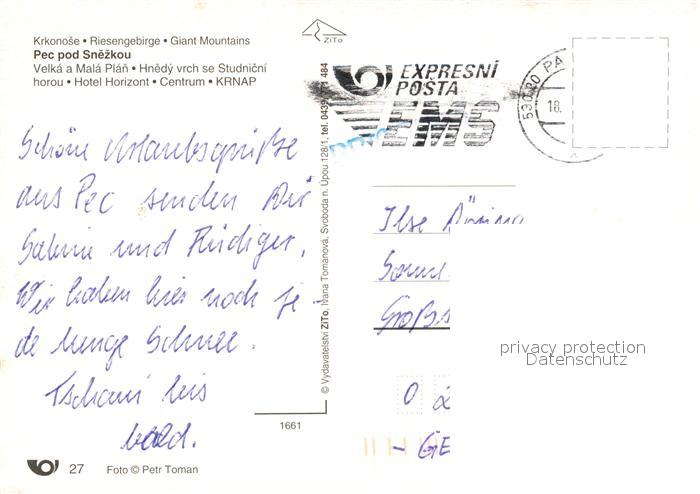 Krkonoše • Riesengebirge • Giant Mountains
Pec pod Sněžkou
Velká a Malá Pláň • Hnědý vrch se Studniční
horou • Hotel Horizont • Centrum • KRNAP
ZiTo
Schöne Urlaubsgrüße
aus Pec senden Dir
Sabine und Rüdiger.
Wir haben hier noch je-
de Menge Schnee.
Tschau bis
bald.
27 Foto © Petr Toman
1661
© Vydavatelství ZiTo, Ivana Tomanová, Svoboda n. Úpou 128/1, tel. 0439/ 484
EXPRESNÍ
POŠTA
EMS
530 80 PA
18.
Ilse
Großs
0
- GE
privacy protection
Datenschutz